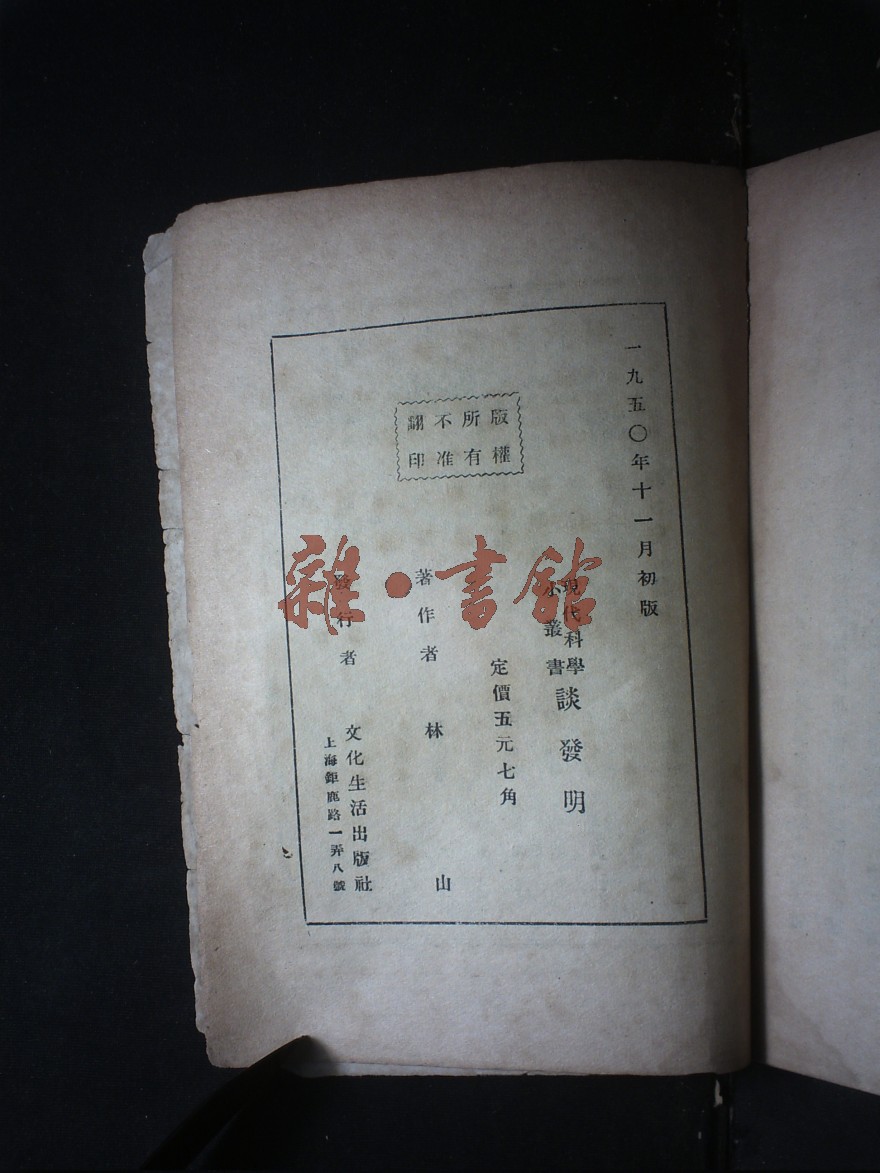 一九五〇年十一月初版
現代科學
小叢書
談發明
定價五元七角
版權
所有
不准
翻印
著作者 林山
發行者 文化生活出版社
上海鉅鹿路一弄八號
雜·書館